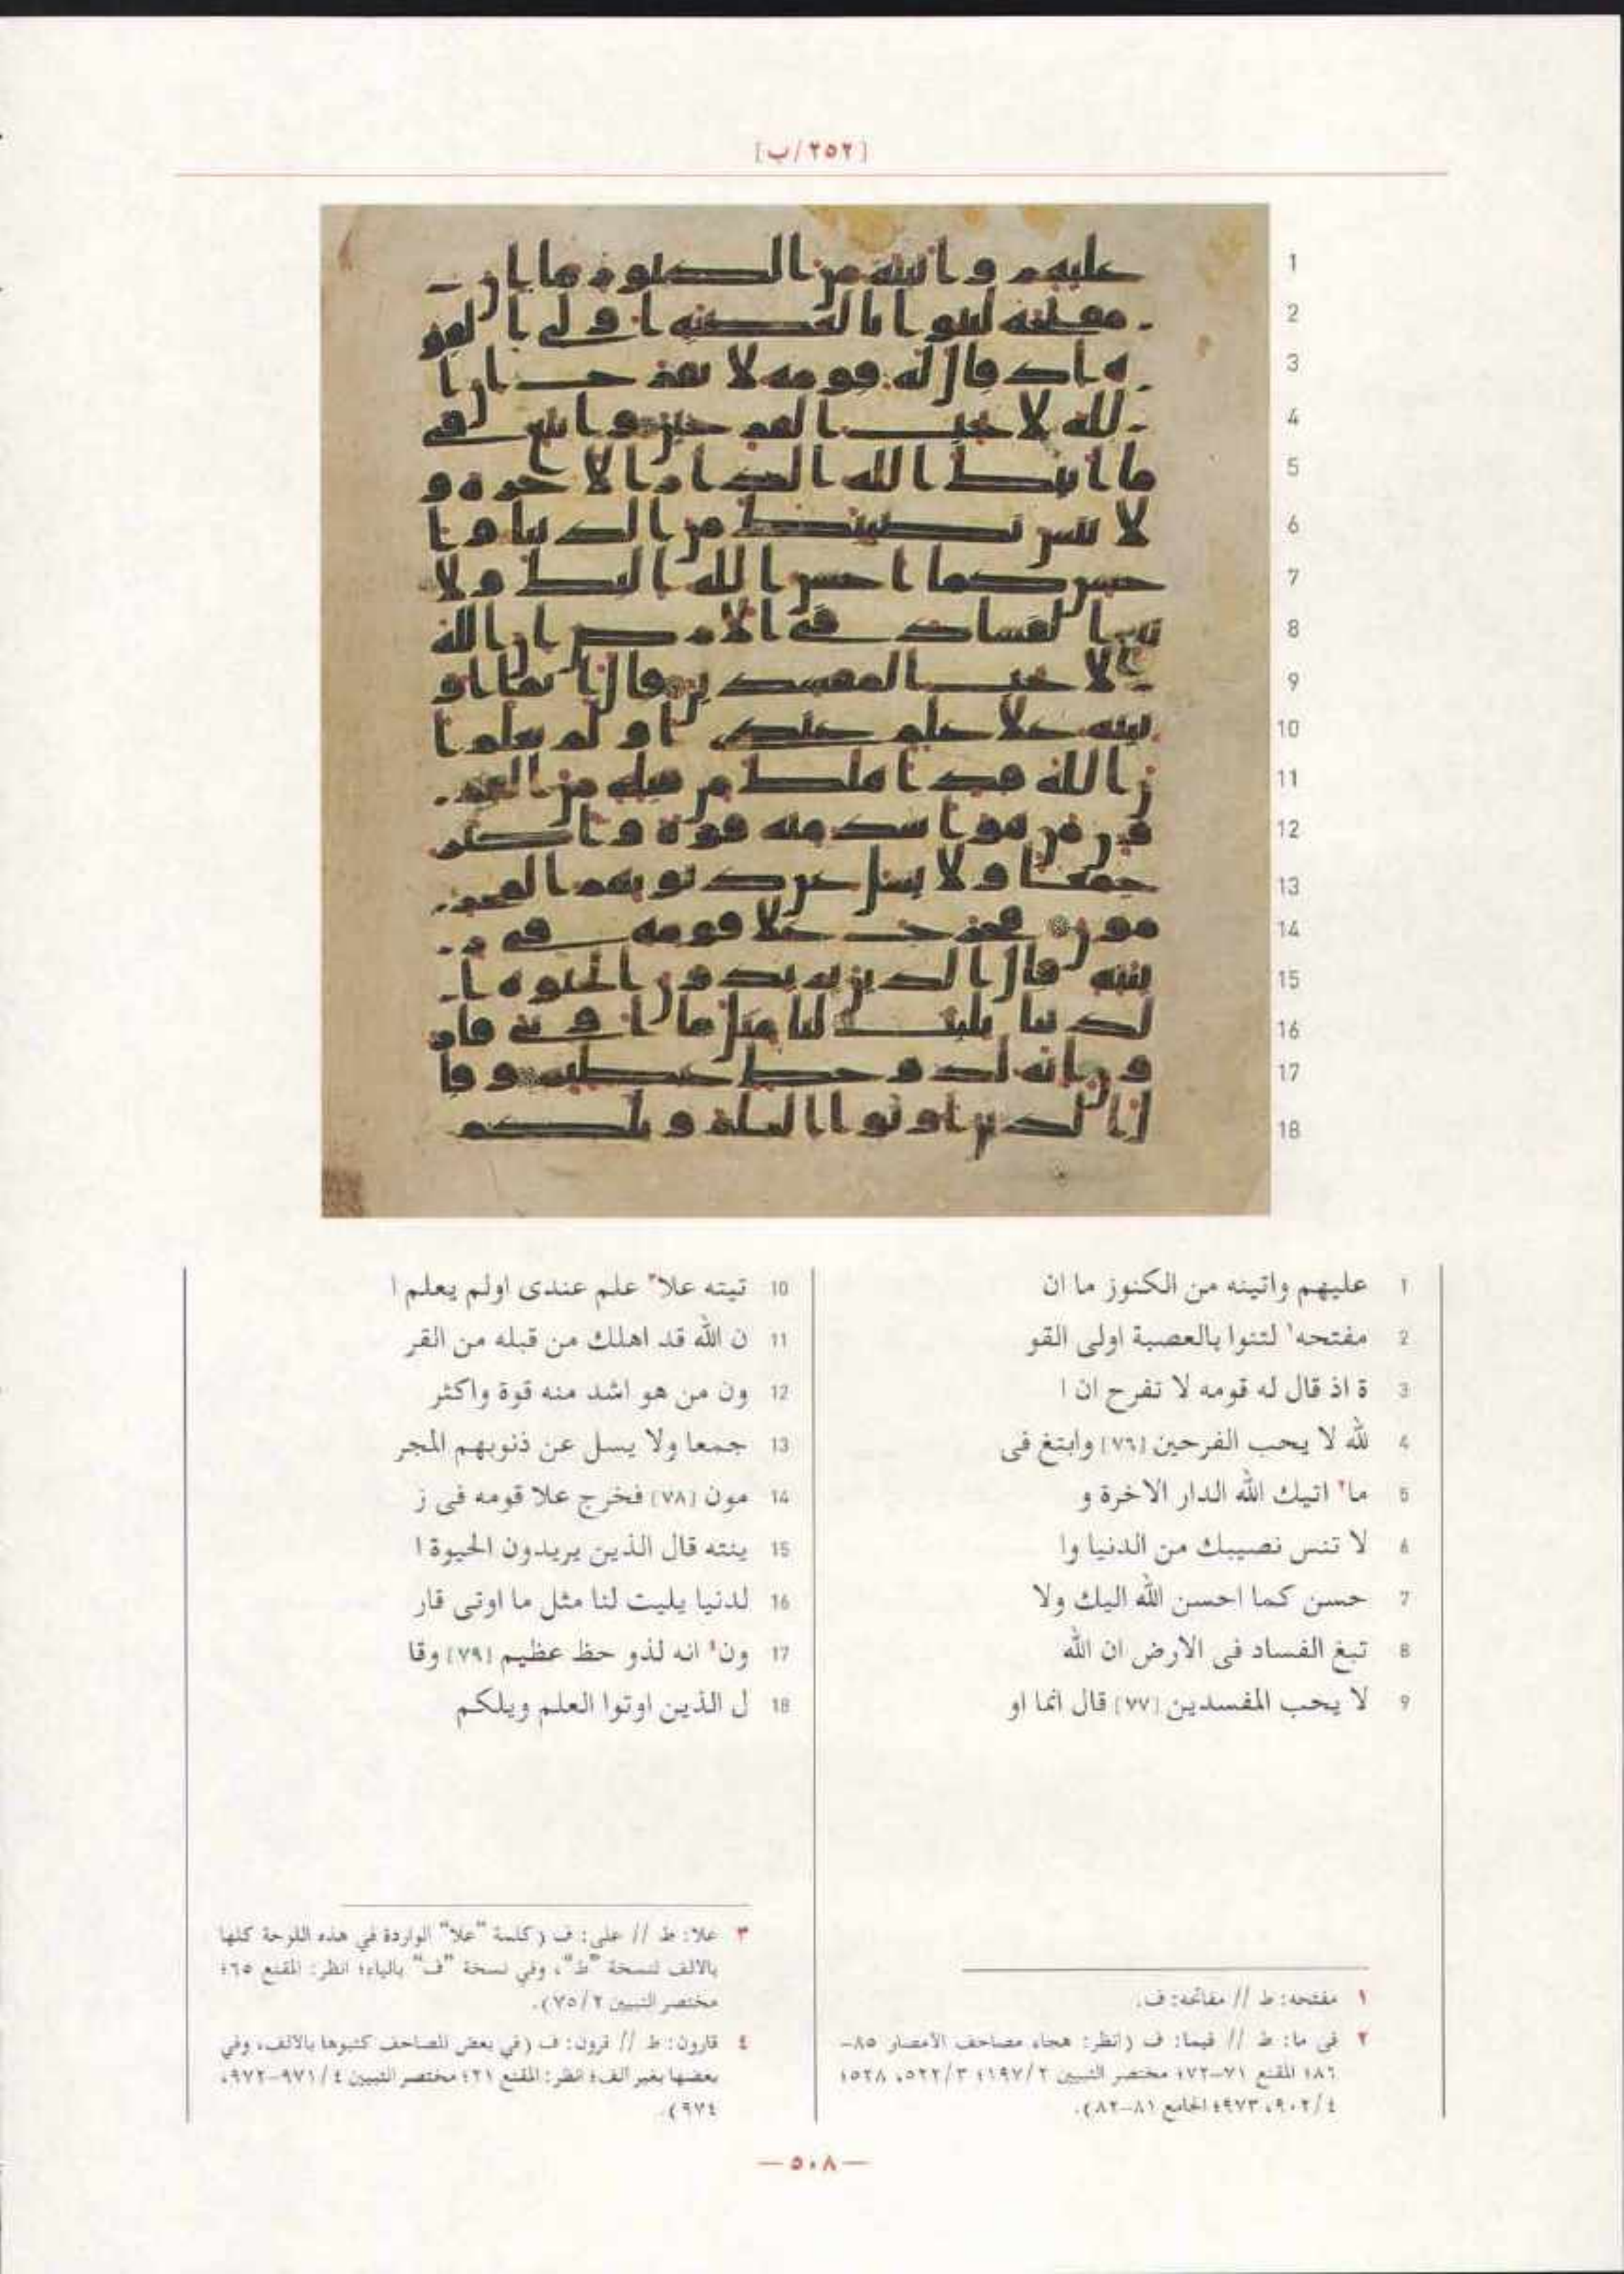 [٢٥٢/ب]
1 عليهم واتينه من الكنوز ما ان
2 مفتحه١ لتنوا بالعصبة اولى القو
3 ة اذ قال له قومه لا تفرح ان ا
4 لله لا يحب الفرحين [٧٦] وابتغ فى
5 ما٢ اتيك الله الدار الاخرة و
6 لا تنس نصيبك من الدنيا وا
7 حسن كما احسن الله اليك ولا
8 تبغ الفساد فى الارض ان الله
9 لا يحب المفسدين [٧٧] قال انما او
10 تيته علا٣ علم عندى اولم يعلم ا
11 ن الله قد اهلك من قبله من القر
12 ون من هو اشد منه قوة واكثر
13 جمعا ولا يسل عن ذنوبهم المجر
14 مون [٧٨] فخرج علا قومه فى ز
15 ينته قال الذين يريدون الحيوة ا
16 لدنيا يليت لنا مثل ما اوتى قار
17 ون٤ انه لذو حظ عظيم [٧٩] وقا
18 ل الذين اوتوا العلم ويلكم
١ مفتحه: ط // مفاتحه: ف.
٢ فى ما: ط // فيما: ف (انظر: هجاء مصاحف الأمصار ٨٥–
٨٦؛ المقنع ٧١–٧٢؛ مختصر التبيين ١٩٧/٢؛ ٥٢٢/٣، ٥٢٨؛
٩٠٢/٤، ٩٧٣؛ الجامع ٨١–٨٢).
٣ علا: ط // على: ف (كلمة "علا" الواردة في هذه اللوحة كلها
بالالف لنسخة "ط"، وفي نسخة "ف" بالياء؛ انظر: المقنع ٦٥؛
مختصر التبيين ٧٥/٢).
٤ قارون: ط // قرون: ف (في بعض المصاحف كتبوها بالالف، وفي
بعضها بغير الف؛ انظر: المقنع ٢١؛ مختصر التبيين ٩٧١/٤–٩٧٢،
٩٧٤).
—٥٠٨—